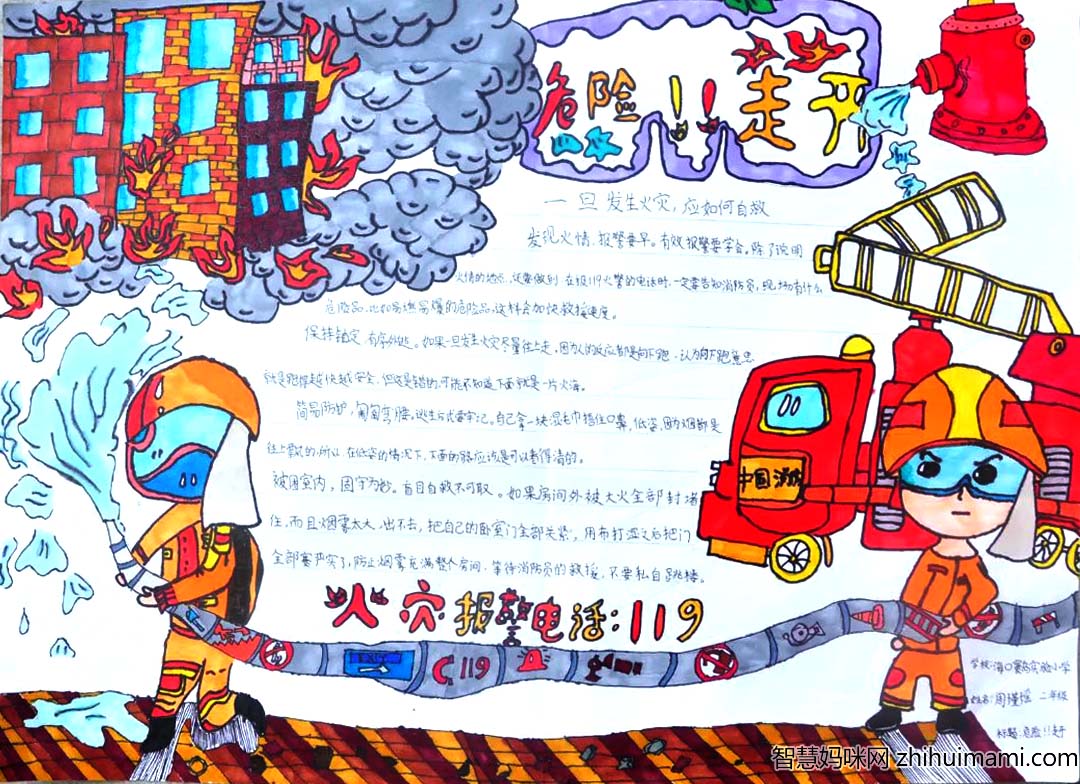 危险!!走开
一旦发生火灾,应如何自救
发现火情,报警要早。有效报警要学会,除了说明
火情的地点,还要做到 在报119火警的电话时,一定要告知消防员,现场有什么
危险品,比如易燃易爆的危险品,这样会加快救援速度。
保持镇定,有序外逃。如果一旦发生火灾尽量往上走,因为人的反应都是向下跑,认为向下跑
就是跑得越快越安全,但这是错的,可能不知道下面就是一片火海。
简易防护,匍匐弯腰。逃生方式要牢记。自己拿一块湿毛巾捂住口鼻,低姿,因为烟雾是
往上飘的,所以,在低姿的情况下,下面的路应该是可以看得清的。
被困室内,固守为妙。盲目自救不可取。如果房间外被大火全部封堵
住,而且烟雾太大,出不去,把自己的卧室门全部关紧,用布打湿之后把门
全部塞严实了,防止烟雾充满整个房间,等待消防员的救援,不要私自跳楼。
中国消防
火灾报警电话:119
119
学校:海口 实验小学
姓名:周瑾瑶 二年级
标题:危险!!走开
智慧妈咪网 zhihuimami.com